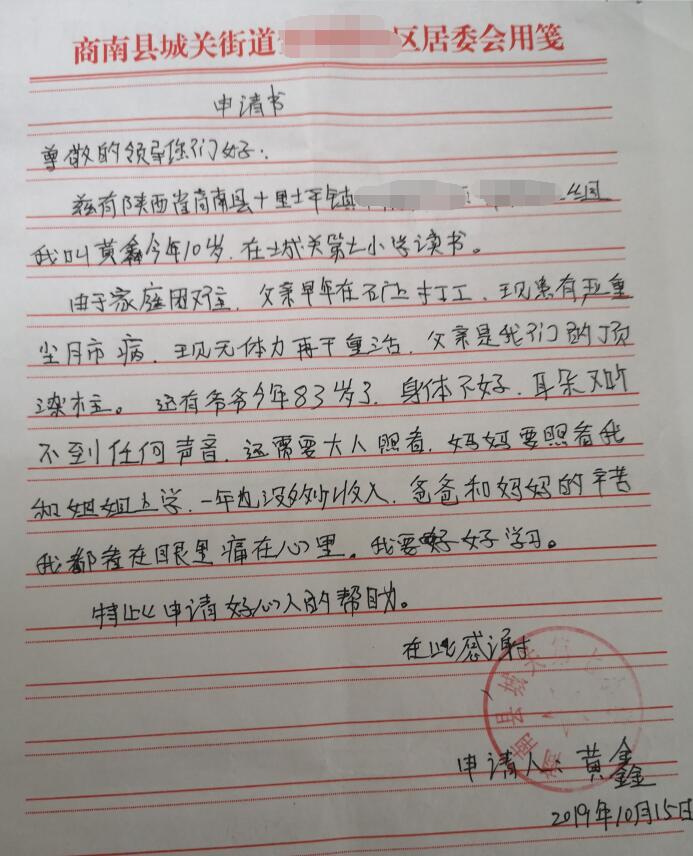 商南县城关街道 区居委会用笺
申请书
尊敬的领导您们好:
兹有陕西省商南县十里坪镇 组
我叫黄鑫今年10岁,在城关第七小学读书。
由于家庭困难,父亲早年在矿上打工,现患有严重
尘肺病,现无体力再干重活,父亲是我们的顶
梁柱。还有爷爷今年83岁了,身体不好,耳朵又听
不到任何声音,还需要大人照看,妈妈要照看我
和姐姐上学,一年也没多少收入,爸爸和妈妈的辛苦
我都看在眼里痛在心里。我要好好学习。
特此申请好心人的帮助。
在此感谢
申请人:黄鑫
2019年10月15日
商南县城关第七